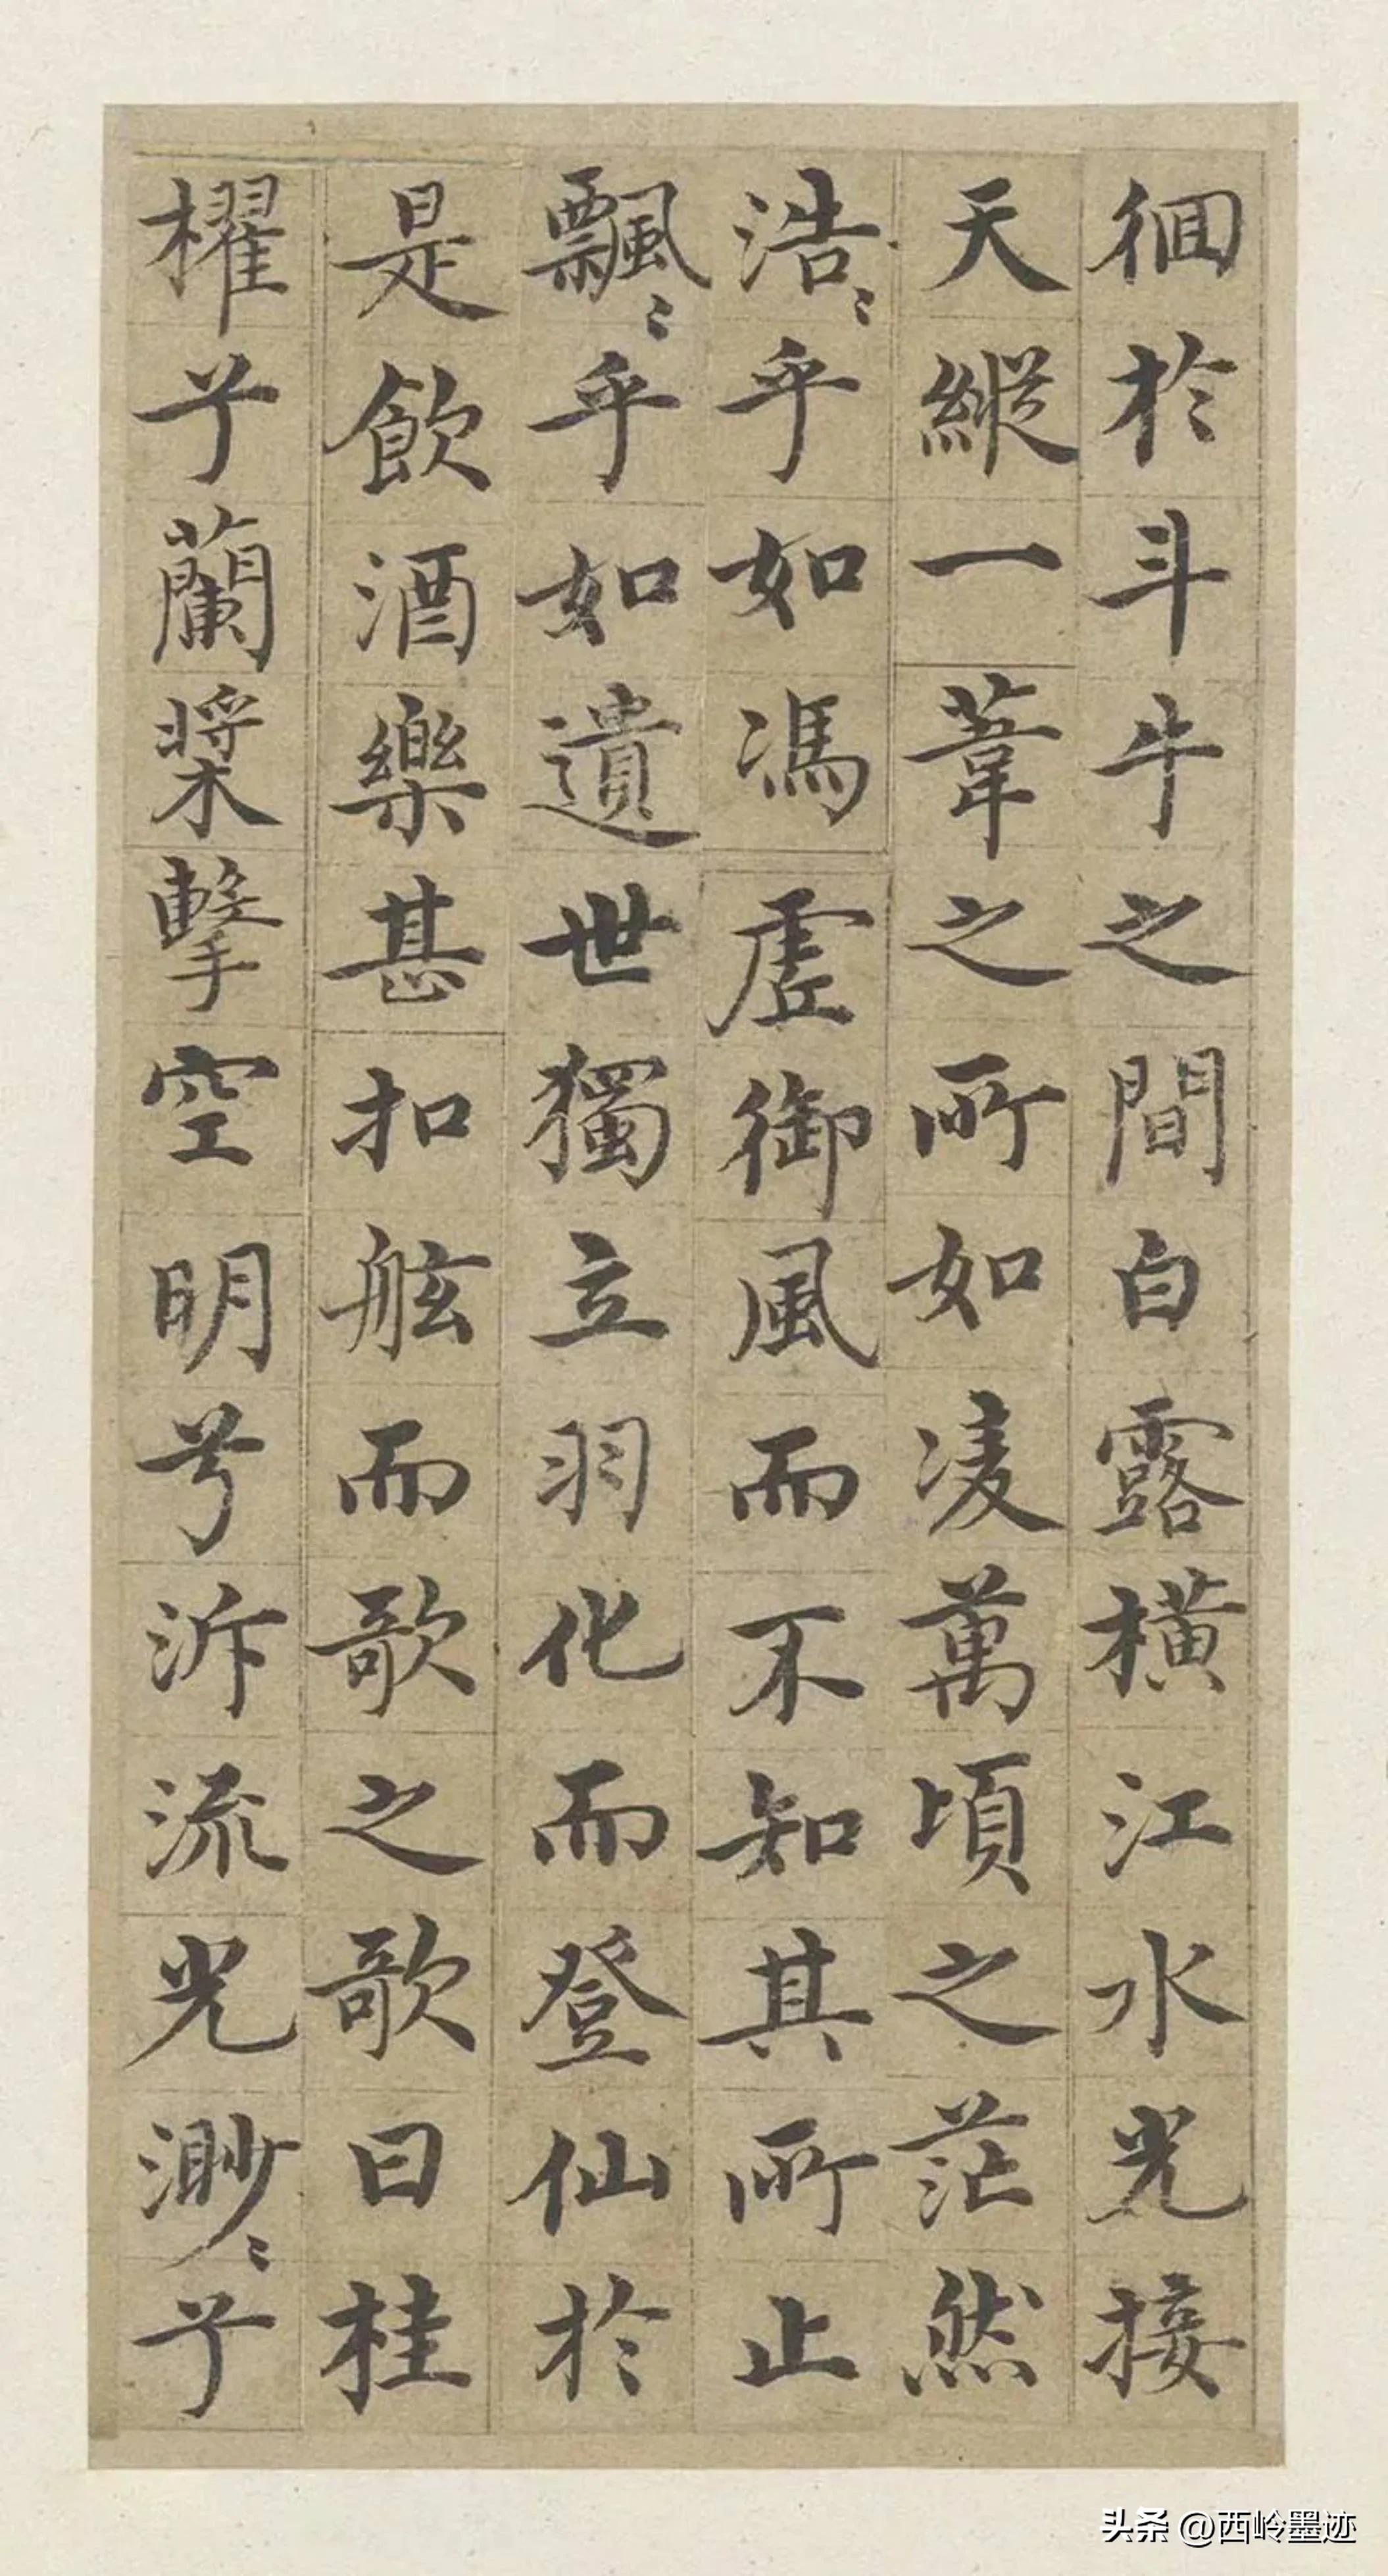 徊於斗牛之間白露橫江水光接
天縱一葦之所如凌萬頃之茫然
浩〻乎如馮虛御風而不知其所止
飄〻乎如遺世獨立羽化而登仙於
是飲酒樂甚扣舷而歌之歌曰桂
櫂兮蘭槳擊空明兮泝流光渺〻兮
头条 @西岭墨迹